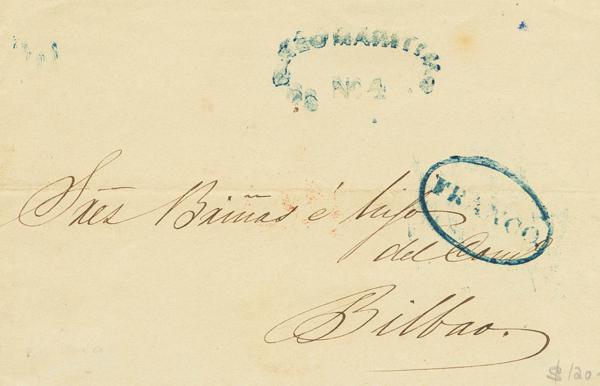 PASEO MARITIMO
No. 4
FRANCO
Sres Bainas é hijo
del Com.
Bilbao.
$120